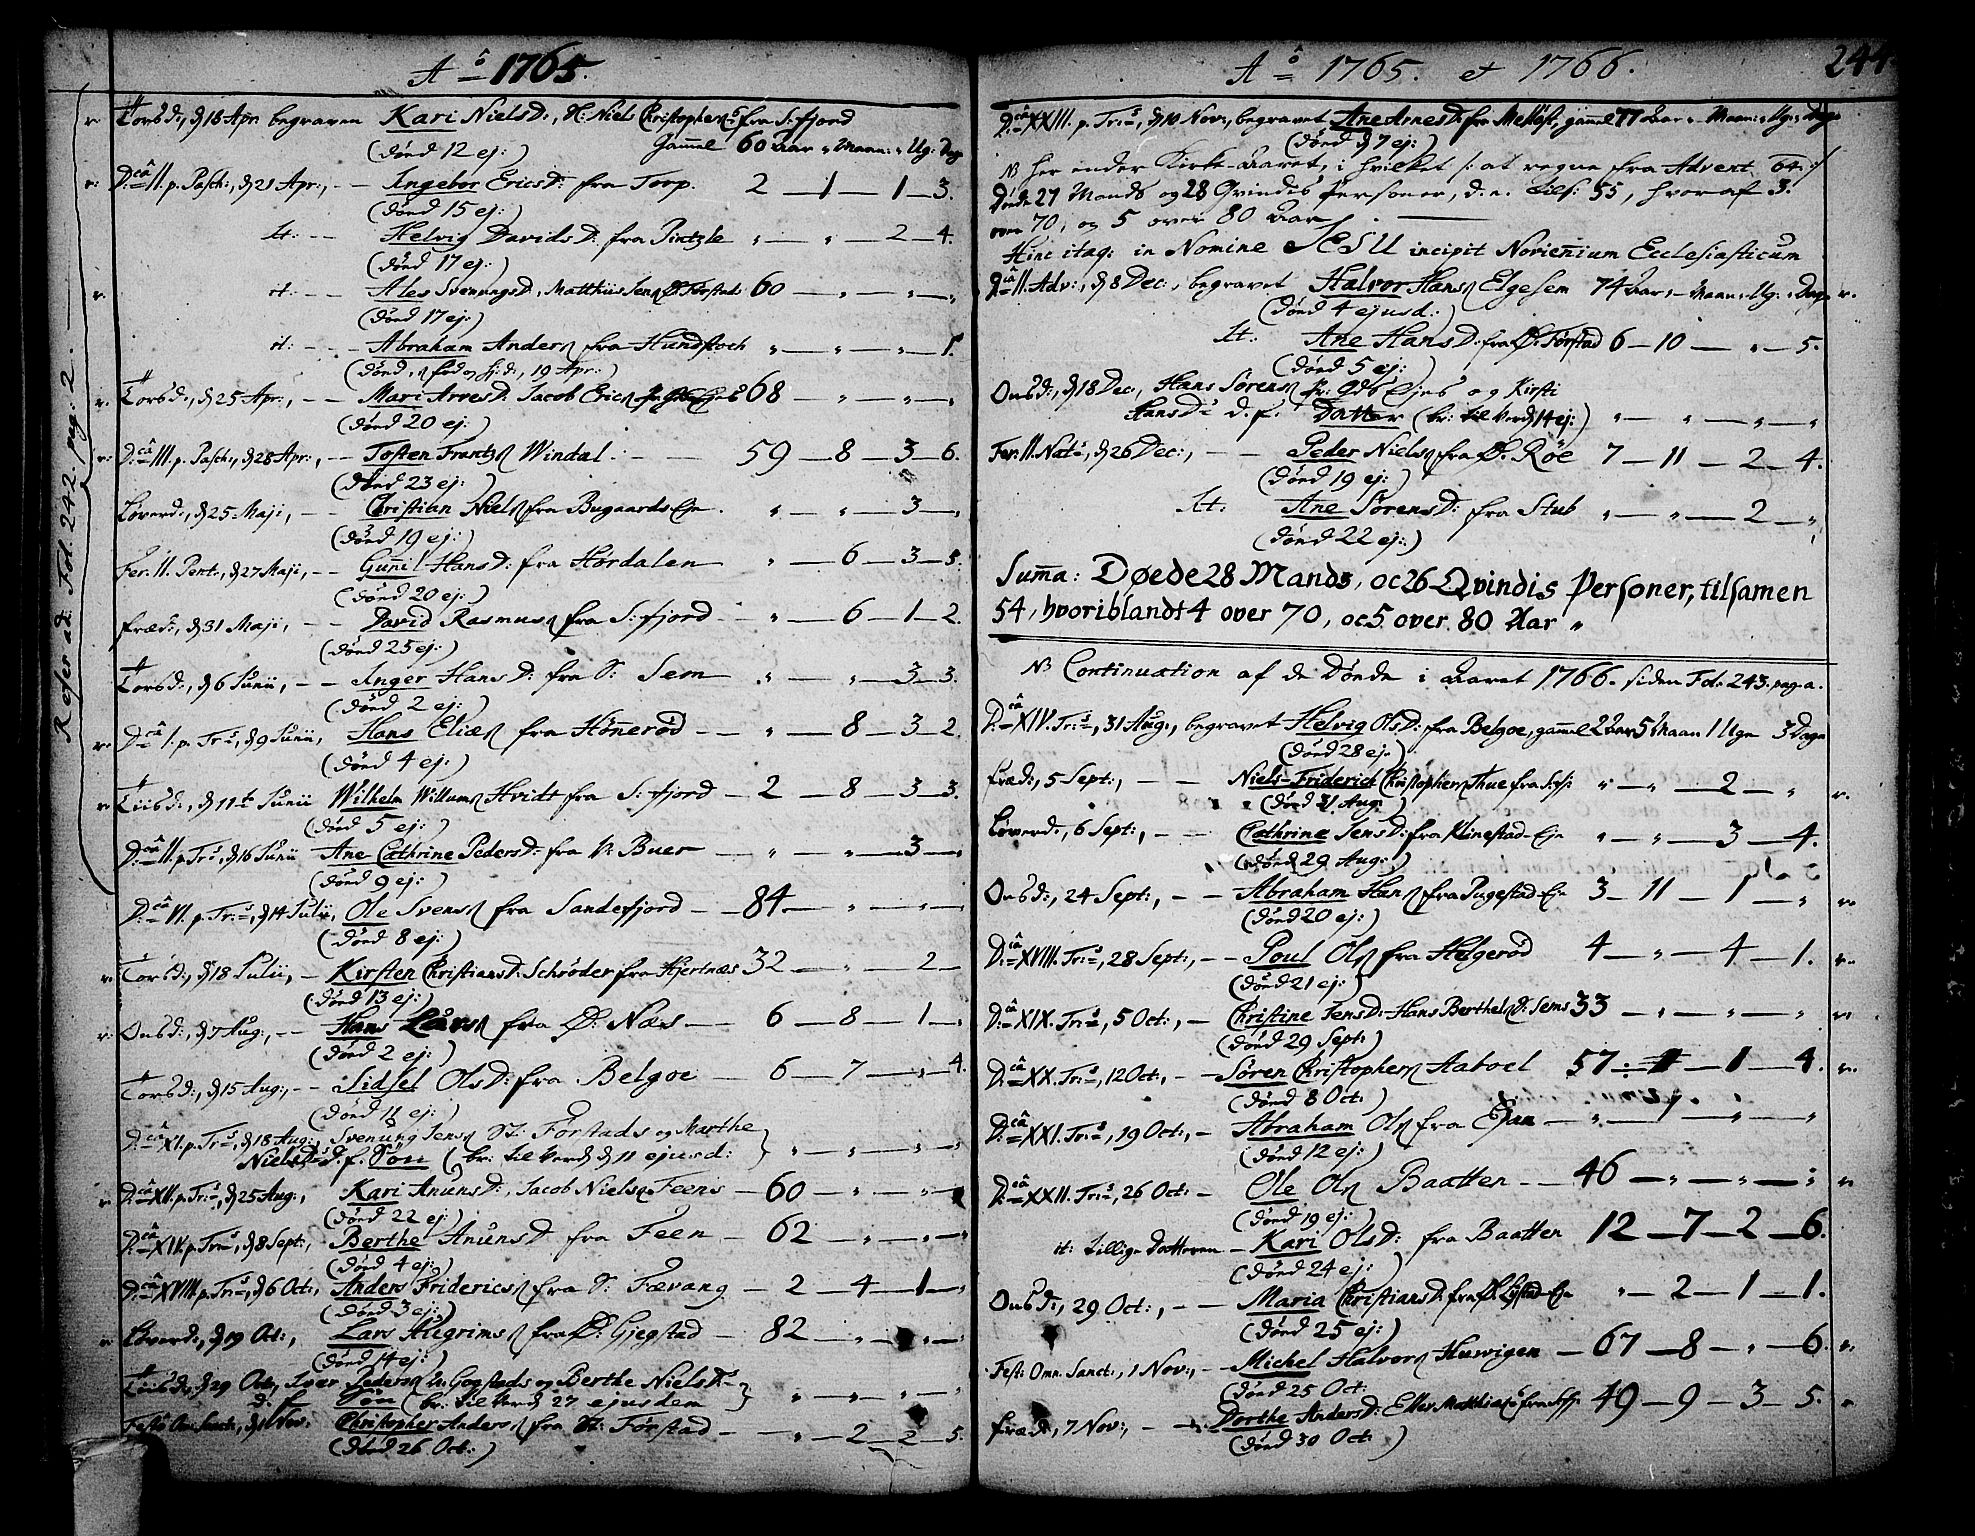 Aô 1765.
Torsd:, d. 18 Apr. begraven Kari NielsD:, Niel Christophers fra S: fjord
(død 12 ej:) Gammel 60 Aar " Maan: " Ug: Dag
D:câ II. p. Pasch:, d. 21 Apr:, — Ingebor EricsD: fra Torp. 2 — 1 — 1 — 3.
(død 15 ej:)
It: — Helvig DavidsD: fra Pintzle " — " — 2 — 4.
(død 17 ej:)
it: — Ales SvenungsD, Matthiis Jens Ø.Førstad 60 — " — " — "
(død 17 ej:)
it: — Abraham Anders fra Hundstoch " — " — " — 1.
(død, 19 Apr:)
Torsd:, d. 25 Apr:, — Mari ArvesD: Jacob Erics 68 — " — " — "
(død 20 ej:)
D:câ III. p. Pasch:, d. 28 Apr:, — Tosten Frantzs Windal — 59 — 8 — 3 — 6.
(død 23 ej:)
Løverd:, d. 25 Maji, — Christian Niels fra Bugaards Eje. " — " — 3 — "
(død 19 ej:)
Fer. II. Pent:, d. 27 Maji, — Guñil HansD: fra Hørdalen " — 6 — 3 — 5.
(død 20 ej:)
fræd:, d. 31 Maji, — David Rasmus fra S: fjord — " — 6 — 1 — 2.
(død 25 ej:)
Torsd:, d. 6 Junii, — Inger HansD: fra S: Sem — " — " — 3 — 3.
(død 2 ej:)
D:câ I. p. Tr:, d. 9 Junii, Hans Elies fra Høñerød — " — 8 — 3 — 2.
(død 4 ej:)
Tiisd:, d. 11te Junii Wilhelm Willums Hvidt fra S: fjord — 2 — 8 — 3 — 3.
(død 5 ej:)
D:câ II. p. Tr:, d. 16 Junii Ane Cathrine PedersD: fra N: Buer — " — " — 3 — "
(død 9 ej:)
D:câ VI. p. Tr:, d. 14 Julii, Ole Svens fra Sandefjord — 84 — " — " — "
(død 8 ej:)
Torsd:, d. 18 Julii, — Kirsten ChristiansD: Schrøder fra Hjertnæs 32 — " — 2 —
(død 13 ej:)
Onsd:, d. 7 Aug:, — Hans Lars fra Ø: Næs — 6 — 8 — 1 — "
(død 2 ej:)
Torsd:, d. 15 Aug:, — Sidsel OlsD: fra Belgoe — 6 — 7 — " — 4.
(død 11 ej:)
D:câ XI. p. Tr:, d. 18 Aug:, Svenung Jens St: Førstads og Marthe
NielsD: d. f. Søn (br: til Verd d. 11 ejusd:) " — " — " — "
D:câ XII. p. Tr:, d. 25 Aug:, Kari AnunsD:, Jacob Niels Feens — 60 — " — " — "
(død 22 ej:)
D:câ XIV. p. Tr:, d. 8 Sept:, Berthe AnunsD: fra Feen — 62 — " — " — "
(død 4 ej:)
D:câ XVIII. p. Tr:, d. 6 Oct:, Anders Friderics fra S: Fævang — 2 — 4 — 1 — "
(død 3 ej:)
Løverd:, d. 19 Oct:, Lars Hiegrims fra Ø: Gjegstad — 82 — " — " — "
(død 14 ej:)
Tiisd:, d. 29 Oct, Iver Peders N: Gogstads og Berthe NielsD:
d. f. Søn (br: til Verd 27 ejusdem) " — " — " — "
Fest: Om: Sanct:, d. 1 Nov:. Christopher Anders fra St: Førstad — " — 2 — 2 — 5.
(død 26 Oct:)
Refer ad. Fol. 242. pag: 2.
Aô 1765. et 1766. 244.
D:câ XXIII. p. Tr:, d. 10 Nov:, begravet Ane ArnesD: fra Melløst, gammel 77 Aar " Maan: " Ug: " Dag:
(død d. 7 ej:)
NB her ender Kirke-Aaret, i hvilket /: at regne fra Advent 64 :/
Døde 27 Mands og 28 Qvindes Personer, d. e. tilsf: 55, hvoraf 3.
over 70, og 5 over 80 Aar.
Hinc itaq: in Nomine JESU incipit Noviennium Ecclesiasticum
D:câ II. Adv:, d. 8 Dec:, begravet Halvor Hans Elgesem 74 Aar, " Maan: " Ug: " Dage
(død 4 ejusd:)
It: Ane HansD: fra Ø. Førstad 6 — 10 — " — 5.
(død 5 ej:)
Onsd:, d. 18 Dec, Hans Sørens og Kirsti
HansD: d. f. Datter (br: til Verd 14 ej:) " — " — " — "
Fer. II. Nat:, d. 26 Dec:, — Peder Niels fra Ø. Røe 7 — 11 — 2 — 4.
(død 19 ej:)
It: Ane SørensD: fra Stub " — " — 2 — "
(død 22 ej:)
Suma: Døede 28 Mands, oc 26 Qvindis Personer, tilsamen
54, hvoriblandt 4 over 70, oc 5 over 80 Aar "
NB Continuation af de Døde i Aaret 1766. siden Fol. 243. pag. a.
D:câ XIV. Tr:, 31 Aug:, begravet Helvig OlsD: fra Belgoe, gammel 2 Aar 5 Maan 1 Uge 3 Dage
(død 28 ej.)
fræd:, 5 Sept:, — Niels-Friderich Christophers Thue fra S: fj: " — " — 2 — "
(død 31 Aug:)
Løverd:, 6 Sept:, — Cathrine JensD: fra Klinestad-Eje " — " — 3 — 4.
(død 29 Aug:)
Onsd:, 24 Sept:, — Abraham Hans fra Pugestad-Eje 3 — 11 — 1 — "
(død 20 ej:)
D:câ XVIII. Tr:, 28 Sept:, — Poul Ols fra Helgerød 4 — " — 4 — 1.
(død 21 ej:)
D:câ XIX. Tr:, 5 Oct:, — Christine JensD: Hans Berthels Ø: Sems 33 — " — " — "
(død 29 Sept:)
D:câ XX. Tr:, 12 Oct:, — Søren Christophers Aaboel 57 — 1 — 1 — 4.
(død 8 Oct:)
D:câ XXI. Tr:, 19 Oct:, — Abraham Ols fra Ejan — " — 1 — " — "
(død 12 ej:)
D:câ XXII. Tr:, 26 Oct: — Ole Ols Baatten — 46 — " — " — "
(død 19 ej:)
it: tillige Datteren — Kari OlsD: fra Baatten 12 — 7 — 2 — 6.
(død 24 ej:)
Onsd:, 29 Oct:, — Maria ChristiansD: fra Ø. Lystad-Eje " — 2 — 1 — 1.
(død 25 ej:)
Fest: Omn. Sanct:, 1 Nov:, — Michel Halvors Huwigen — 67 — 8 — " — 6.
(død 25 Oct:
fræd:, 7 Nov:, — Dorthe AndersD: Ellev Matthias fra S: fj: 49 — 9 — 3 — 5.
(død 30 Oct:)